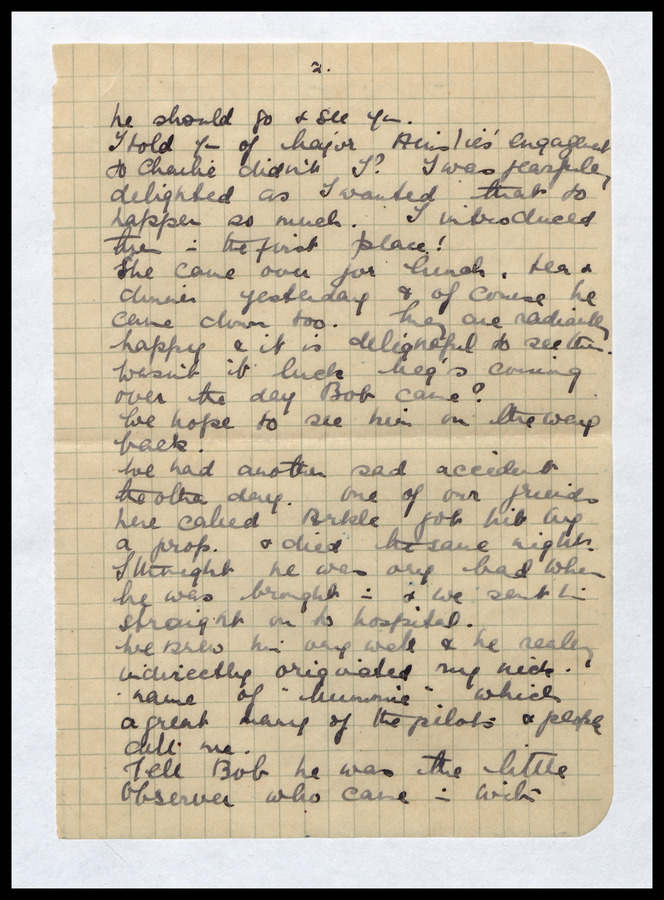 2.
he should go & see you.
I told you of Major Ainslies' engagement
to Charlie didn't I? I was fearfully
delighted as I wanted that to
happen so much. I introduced
them in the first place!
She came over for lunch, tea &
dinner yesterday & of course he
came down too. They are radiantly
happy & it is delightful to see them.
Wasn't it luck he's coming
over the day Bob came?
We hope to see him on the way
back.
We had another sad accident
the other day. One of our friends
here called Arkle got hit by
a prop. & died the same night.
I thought he was very bad when
he was brought in & we sent him
straight on to hospital.
We knew him very well & he really
indirectly originated my nick.
name of "Mummie" which
a great many of the pilots & people
call me.
Tell Bob he was the little
Observer who came in with